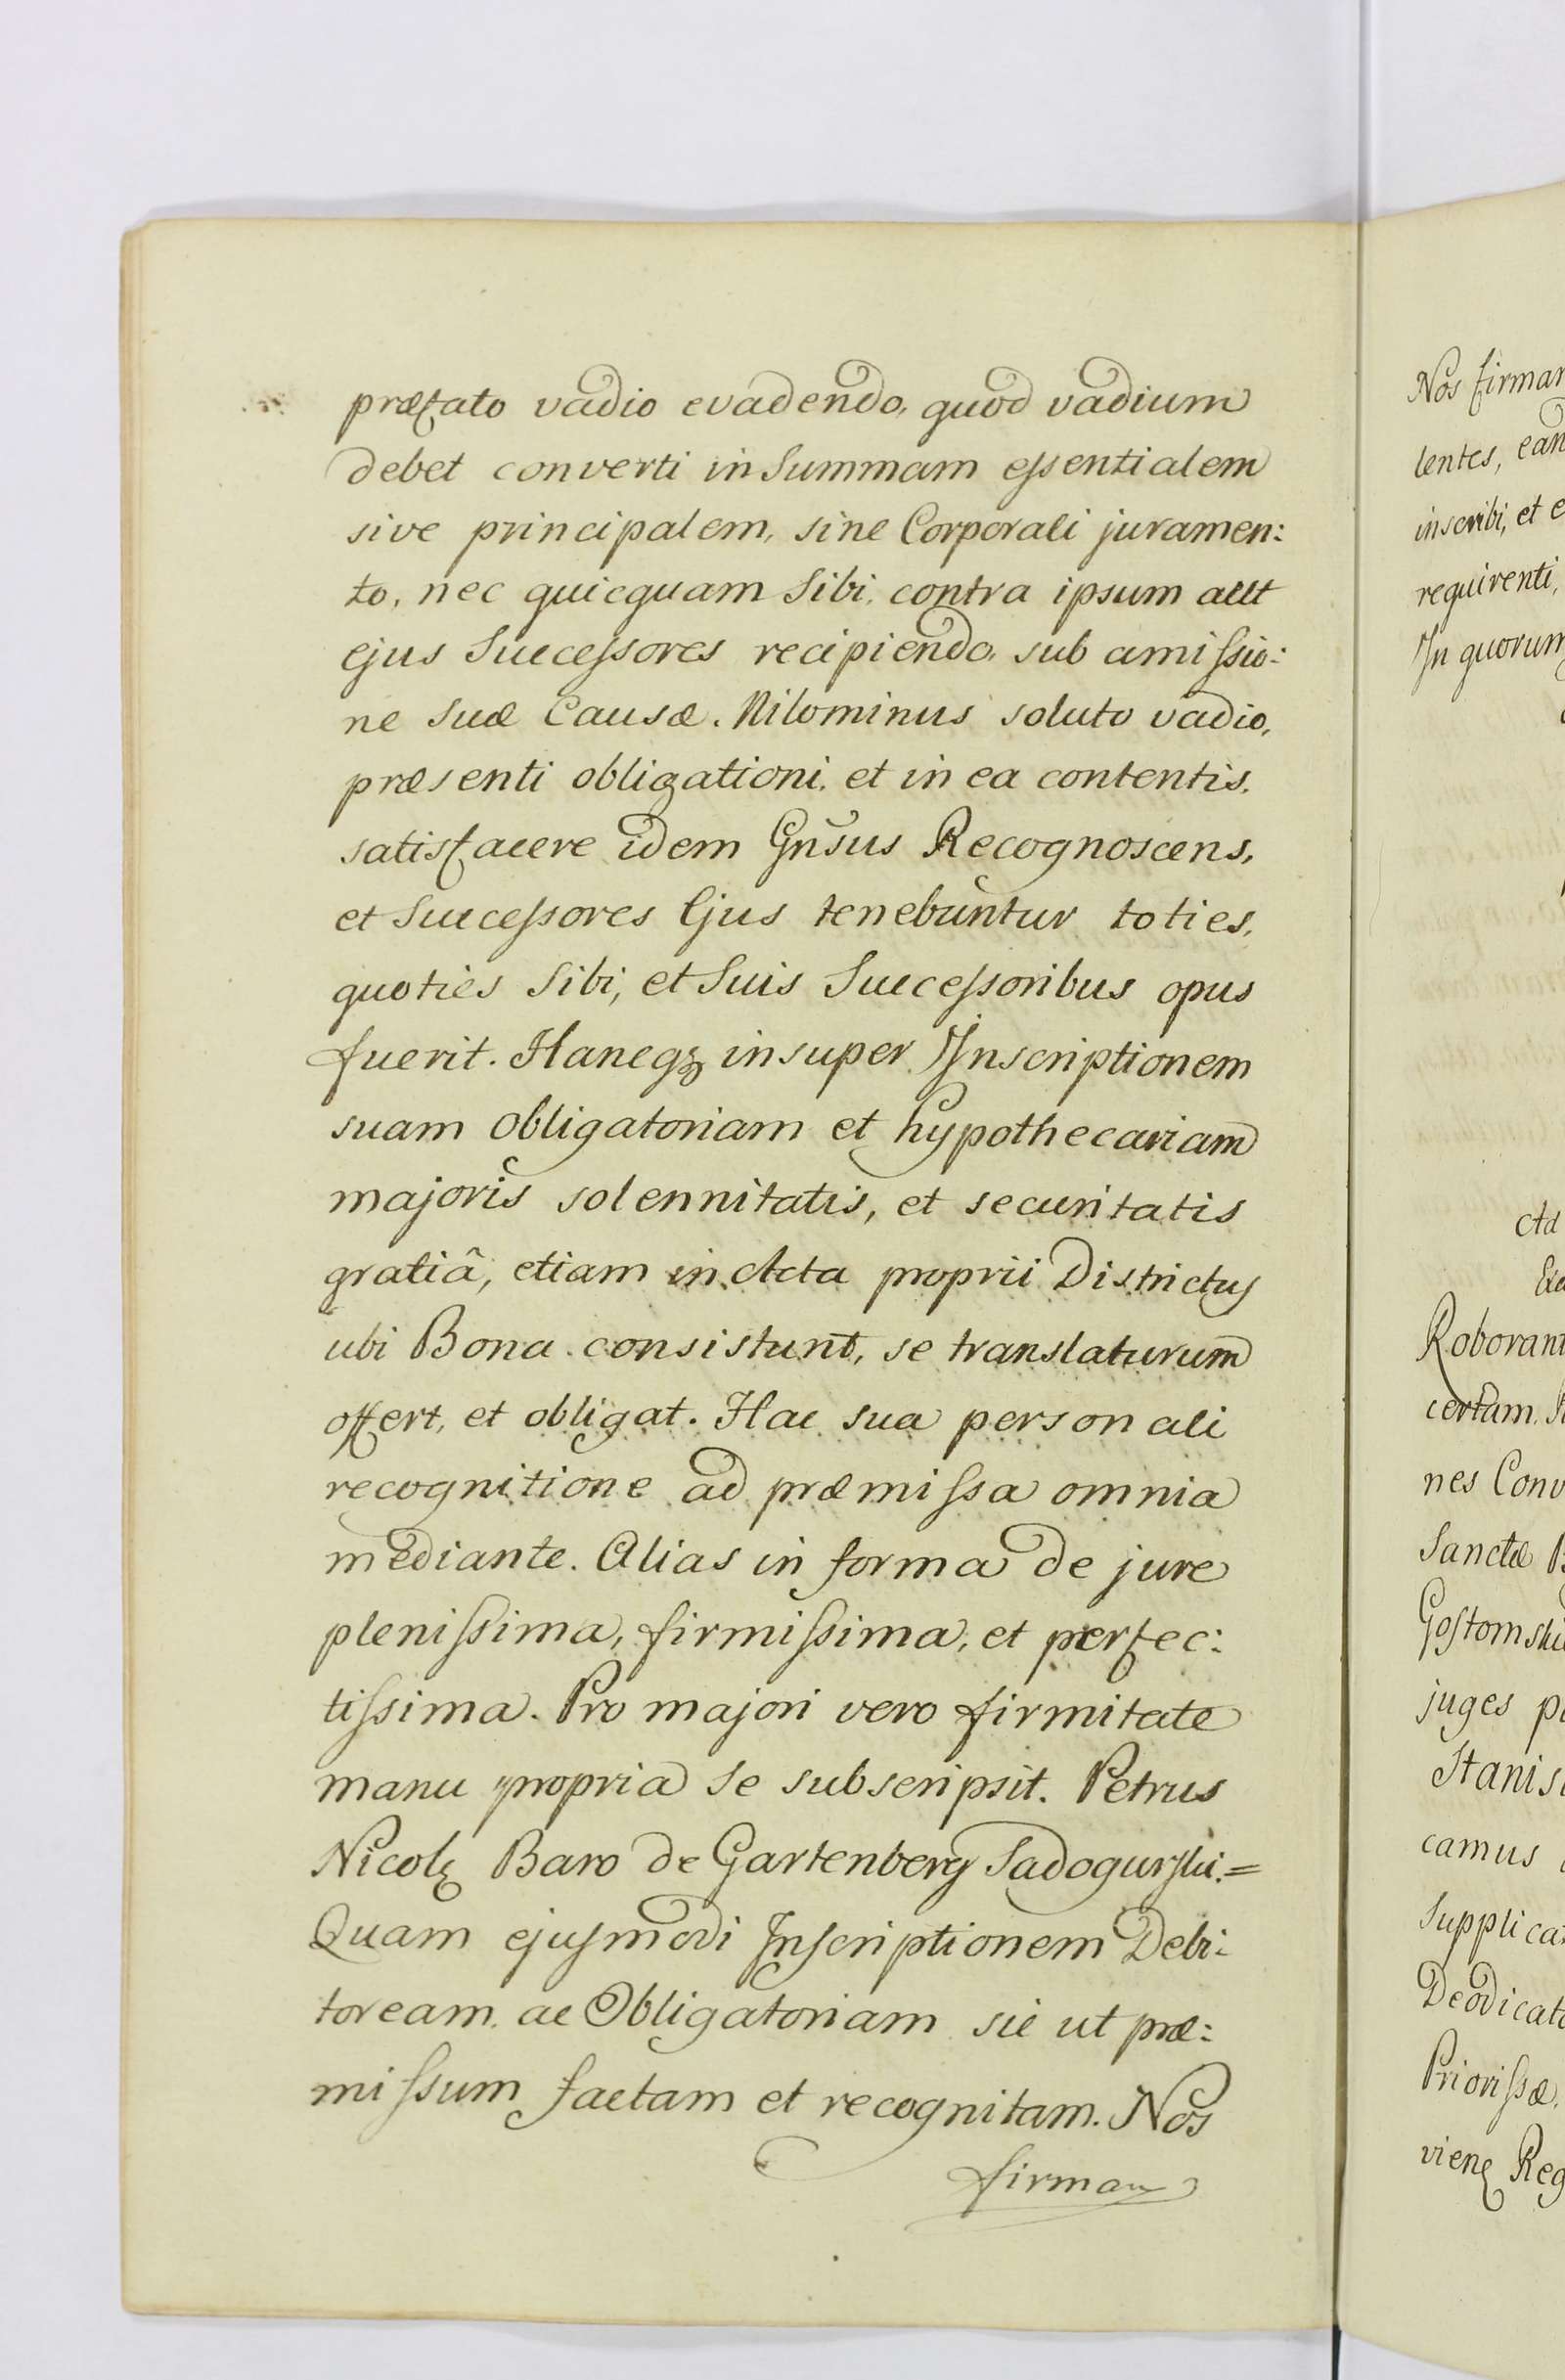 præfato vadio evadendo, quod vadium
debet converti in Summam essentialem
sive principalem, sine Corporali juramen:
to, nec quicquam Sibi, contra ipsum autt
ejus Successores recipiendo, sub amissio:
ne Suæ Causæ. Nilominus soluto vadio,
præsenti obligationi, et in ea contentis,
satisfacere idem Gñsus Recognoscens,
et Successores Ejus tenebuntur toties,
quoties Sibi, et Suis Successoribus opus
fuerit. Hancqꝫ insuper Inscriptionem
suam obligatoriam et hypothecariam
majoris solennitatis, et securitatis
gratiâ, etiam in Acta proprii Districtus
ubi Bona consistunt, se translaturum
offert, et obligat. Hac sua personali
recognitione ad præmissa omnia
mediante. Alias in forma de jure
plenissima, firmissima, et perfec:
tissima. Pro majori vero firmitate
manu propria se subscripsit. Petrus
Nicolę Baro de Gartenberg Sadogurski.=
Quam ejusmodi Inscriptionem Debi:
toream, ac Obligatoriam sic ut præ:
missum factam et recognitam. Nos
firman
Nos firman
lentes, ean
inscribi, et e
requirenti,
In quorum
Ad
Roborant
certam,
nes Conv
Sanctæ
Gostomski
juges
Stanis
camus
Supplica
Deodicat
Priorissæ,
vienę Reg